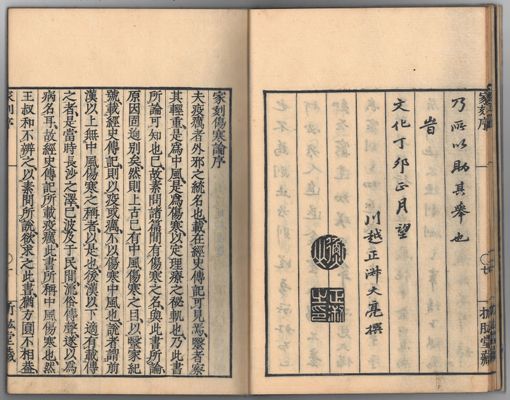 家刻序
折肱堂藏
乃所以助其舉也
旹
文化丁卯正月望
川越正淑大亮撰
家刻傷寒論序
夫疫癘者外邪之統名也載在經史傳記可見焉醫者察
其輕重是爲中風是爲傷寒以定理療之秘軌也乃此書
所論可知也已故素問諸篇間有傷寒之名與此書所論
原因固逈別矣然則上古已有中風傷寒之目以醫家紀
號載經史傳記則以疫或癘不以傷寒中風也說者謂前
漢以上無中風傷寒之稱者以是也後漢以下適有載傳
之者是當時長沙之澤已波及于民間流俗傳聲遂以爲
病名耳故經史傳記所載疫癘此書所稱中風傷寒也然
王叔和不辨之以素問所說欲求之此書猶方圓不相蓋
家刻序
折肱堂藏